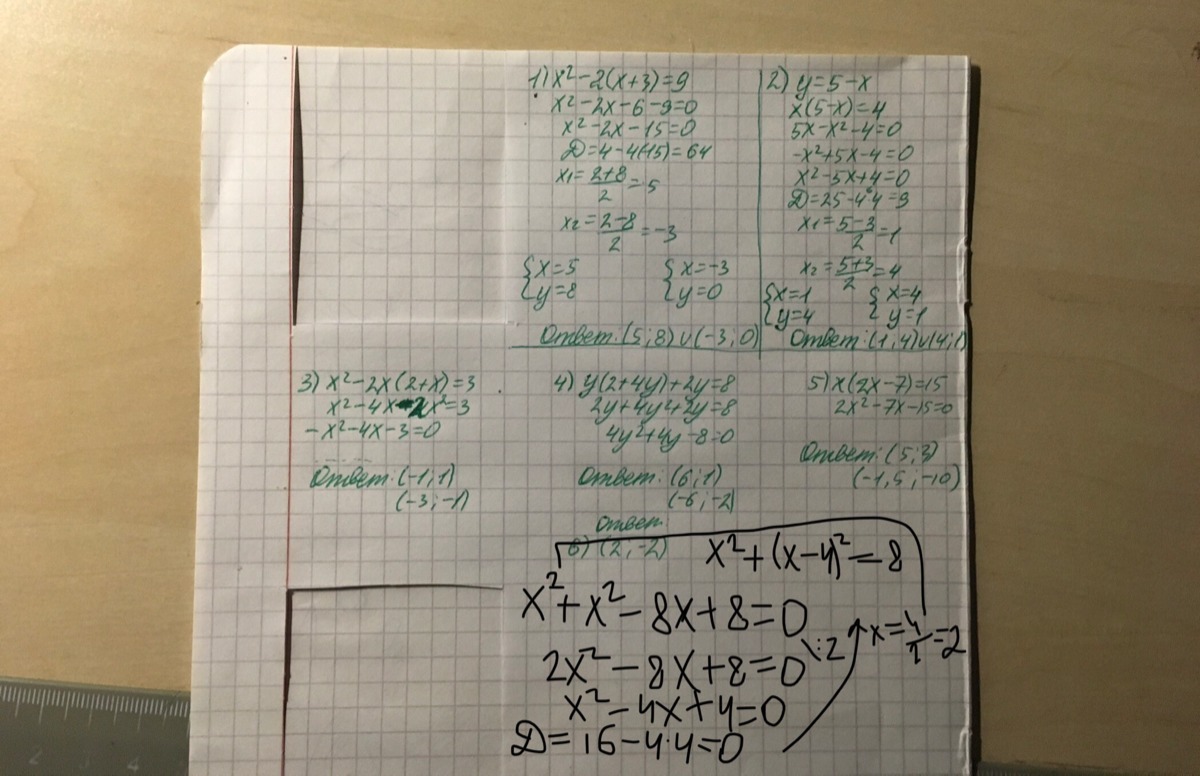 1) x²-2(x+3)=9
x²-2x-6-9=0
x²-2x-15=0
D=4-4(-15)=64
x1=2+8/2=5
x2=2-8/2=-3
{x=5 {x=-3
{y=8 {y=0
Ответ: (5;8)∪(-3;0)
2) y=5-x
x(5-x)=4
5x-x²-4=0
-x²+5x-4=0
x²-5x+4=0
D=25-4·4=9
x1=5-3/2=1
x2=5+3/2=4
{x=1 {x=4
{y=4 {y=1
Ответ: (1;4)∪(4;1)
3) x²-2x(2+x)=3
x²-4x-2x²=3
-x²-4x-3=0
Ответ: (-1;1)
(-3;-1)
4) y(2+4y)+2y=8
2y+4y²+2y=8
4y²+4y-8=0
Ответ: (6;1)
(-6;-2)
5) x(2x-7)=15
2x²-7x-15=0
Ответ: (5;3)
(-1,5;-10)
Ответ:
6) (2;-2)
x²+(x-4)²=8
x²+x²-8x+8=0
2x²-8x+8=0 \:2
x²-4x+4=0
D=16-4·4=0
x=4/2=2
2 3 4